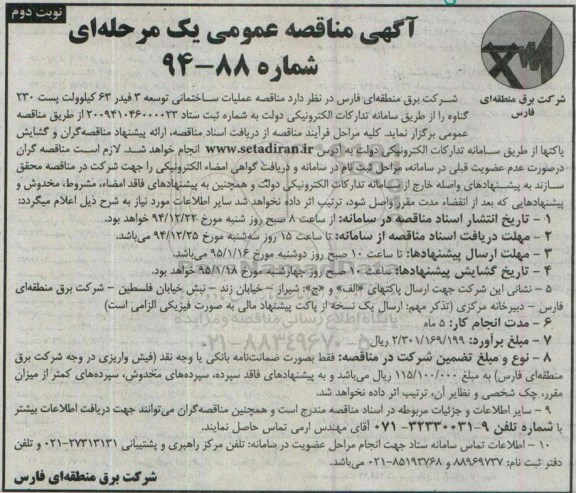 نوبت دوم
آگهی مناقصه عمومی یک مرحله‌ای
شماره ۸۸-۹۴
شرکت برق منطقه‌ای
فارس
شرکت برق منطقه‌ای فارس در نظر دارد مناقصه عملیات ساختمانی توسعه ۳ فیدر ۶۳ کیلوولت پست ۲۳۰
گناوه را از طریق سامانه تدارکات الکترونیکی دولت به شماره ثبت ستاد ۲۰۰۹۴۱۰۴۶۰۰۰۰۲۳ از طریق مناقصه
عمومی برگزار نماید. کلیه مراحل فرآیند مناقصه از دریافت اسناد مناقصه، ارائه پیشنهاد مناقصه‌گران و گشایش
پاکتها از طریق سامانه تدارکات الکترونیکی دولت به آدرس www.setadiran.ir انجام خواهد شد. لازم است مناقصه گران
درصورت عدم عضویت قبلی در سامانه، مراحل ثبت نام در سامانه و دریافت گواهی امضاء الکترونیکی را جهت شرکت در مناقصه محقق
سازند به پیشنهادهای واصله خارج از سامانه تدارکات الکترونیکی دولت و همچنین به پیشنهادهای فاقد امضاء، مشروط، مخدوش و
پیشنهادهایی که بعد از انقضاء مدت مقرر واصل شود، ترتیب اثر داده نخواهد شد سایر اطلاعات مورد نیاز به شرح ذیل اعلام میگردد:
۱ - تاریخ انتشار اسناد مناقصه در سامانه: از ساعت ۸ صبح روز شنبه مورخ ۹۴/۱۲/۲۲ خواهد بود.
۲ - مهلت دریافت اسناد مناقصه از سامانه: تا ساعت ۱۵ روز سه‌شنبه مورخ ۹۴/۱۲/۲۵ می‌باشد.
۳ - مهلت ارسال پیشنهادها: تا ساعت ۱۰ صبح روز دوشنبه مورخ ۹۵/۱/۱۶ می‌باشد.
۴ - تاریخ گشایش پیشنهادها: ساعت ۱۰ صبح روز چهارشنبه مورخ ۹۵/۱/۱۸ خواهد بود.
۵ - نشانی این شرکت جهت ارسال پاکتهای «الف» و «ج»: شیراز - خیابان زند - نبش خیابان فلسطین - شرکت برق منطقه‌ای
فارس - دبیرخانه مرکزی (تذکر مهم: ارسال یک نسخه از پاکت پیشنهاد مالی به صورت فیزیکی الزامی است)
۶ - مدت انجام کار: ۵ ماه
۷ - مبلغ برآورد: ۲/۳۰۱/۱۶۹/۱۹۹ ریال
۸ - نوع و مبلغ تضمین شرکت در مناقصه: فقط بصورت ضمانت‌نامه بانکی یا وجه نقد (فیش واریزی در وجه شرکت برق
منطقه‌ای فارس) به مبلغ ۱۱۵/۱۰۰/۰۰۰ ریال می‌باشد و به پیشنهادهای فاقد سپرده، سپرده‌های مخدوش، سپرده‌های کمتر از میزان
مقرر، چک شخصی و نظایر آن، ترتیب اثر داده نخواهد شد.
۹ - سایر اطلاعات و جزئیات مربوطه در اسناد مناقصه مندرج است و همچنین مناقصه‌گران می‌توانند جهت دریافت اطلاعات بیشتر
با شماره تلفن ۹-۳۲۳۳۰۰۳۱-۰۷۱ آقای مهندس ارمی تماس حاصل نمایند.
۱۰ - اطلاعات تماس سامانه ستاد جهت انجام مراحل عضویت در سامانه: تلفن مرکز راهبری و پشتیبانی ۲۷۳۱۳۱۳۱-۰۲۱ و تلفن
دفتر ثبت نام: ۸۸۹۶۹۷۳۷ و ۸۵۱۹۳۷۶۸-۰۲۱ می‌باشد.
شرکت برق منطقه‌ای فارس
پایگاه اطلاع رسانی مناقصه و مزایده
۰۲۱-۸۸۳۴۹۶۷۰-۵